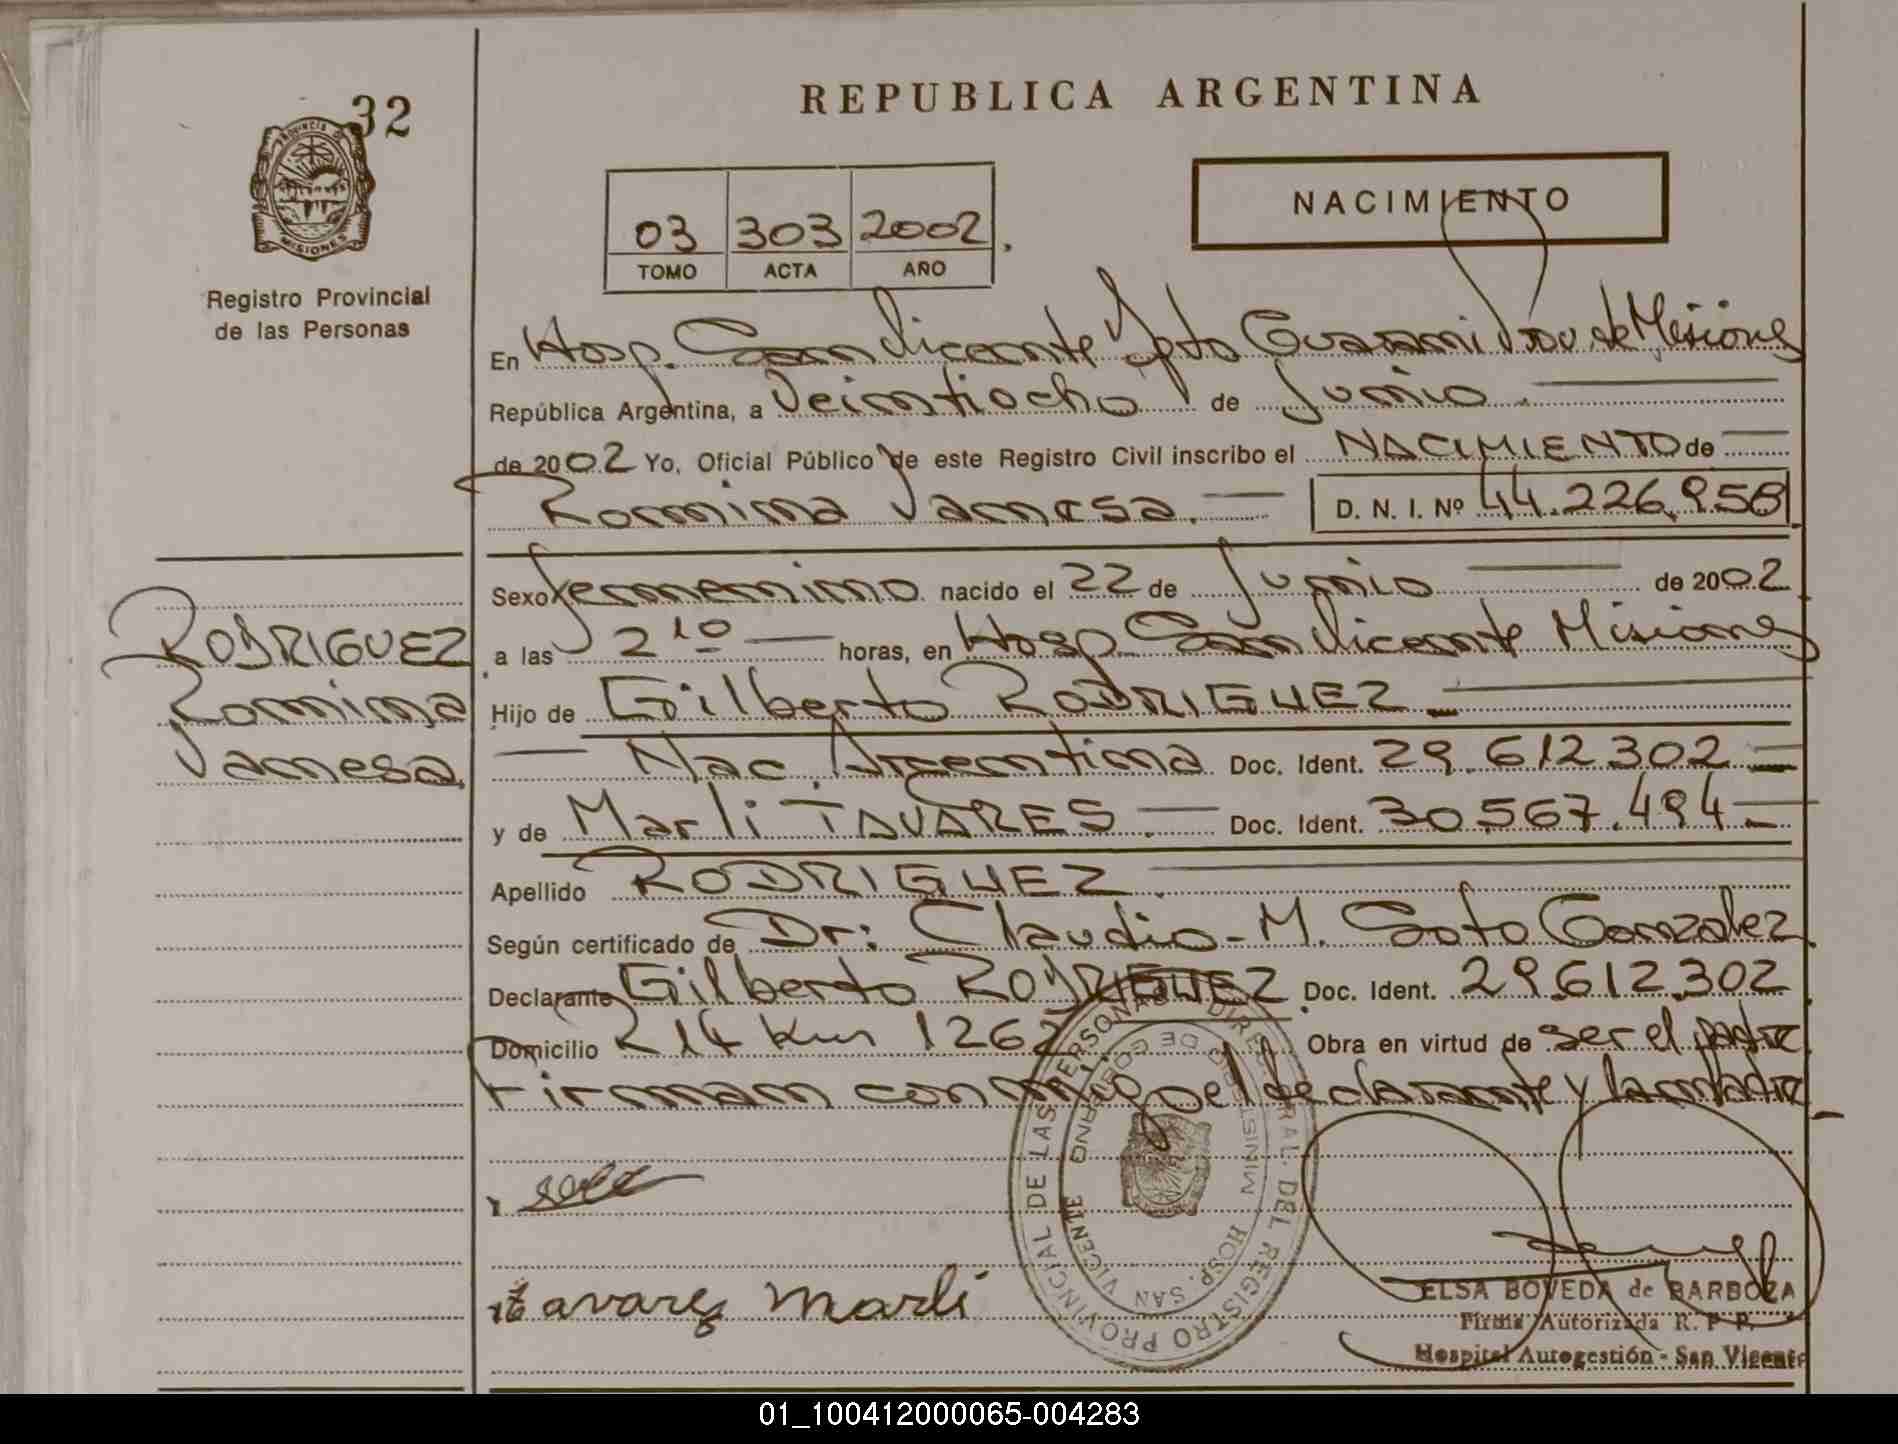 32
PROVINCIA DE
MISIONES
Registro Provincial
de las Personas
REPUBLICA ARGENTINA
03 303 2002
TOMO ACTA AÑO
NACIMIENTO
En Hosp. San Vicente Dpto Guarani Prov. de Misiones
República Argentina, a Veintiocho de Junio
de 2002 Yo, Oficial Público de este Registro Civil inscribo el NACIMIENTO de
Romina Vanesa. D. N. I. Nº 44.226.958
Sexo femenino nacido el 22 de Junio de 2002
a las 2 10 horas, en Hosp. San Vicente Misiones
Hijo de Gilberto RODRIGUEZ
Nac. Argentina Doc. Ident. 29.612.302
y de Marli TAVARES. Doc. Ident. 30.567.494
Apellido RODRIGUEZ.
Según certificado de Dr: Claudio-M. Soto Gonzalez
Declarante Gilberto RODRIGUEZ Doc. Ident. 29.612.302
Domicilio R 14 Km 1262 Obra en virtud de ser el padre
Firman conmigo el declarante y la madre
RODRIGUEZ
Romina
Vanesa.
REGISTRO PROVINCIAL DE LAS PERSONAS
MINISTERIO DE GOBIERNO
HOSP. SAN VICENTE
tavarez marli
ELSA BOVEDA de BARBOZA
Firma Autorizada R. P. P.
Hospital Autogestión - San Vicente
01_100412000065-004283